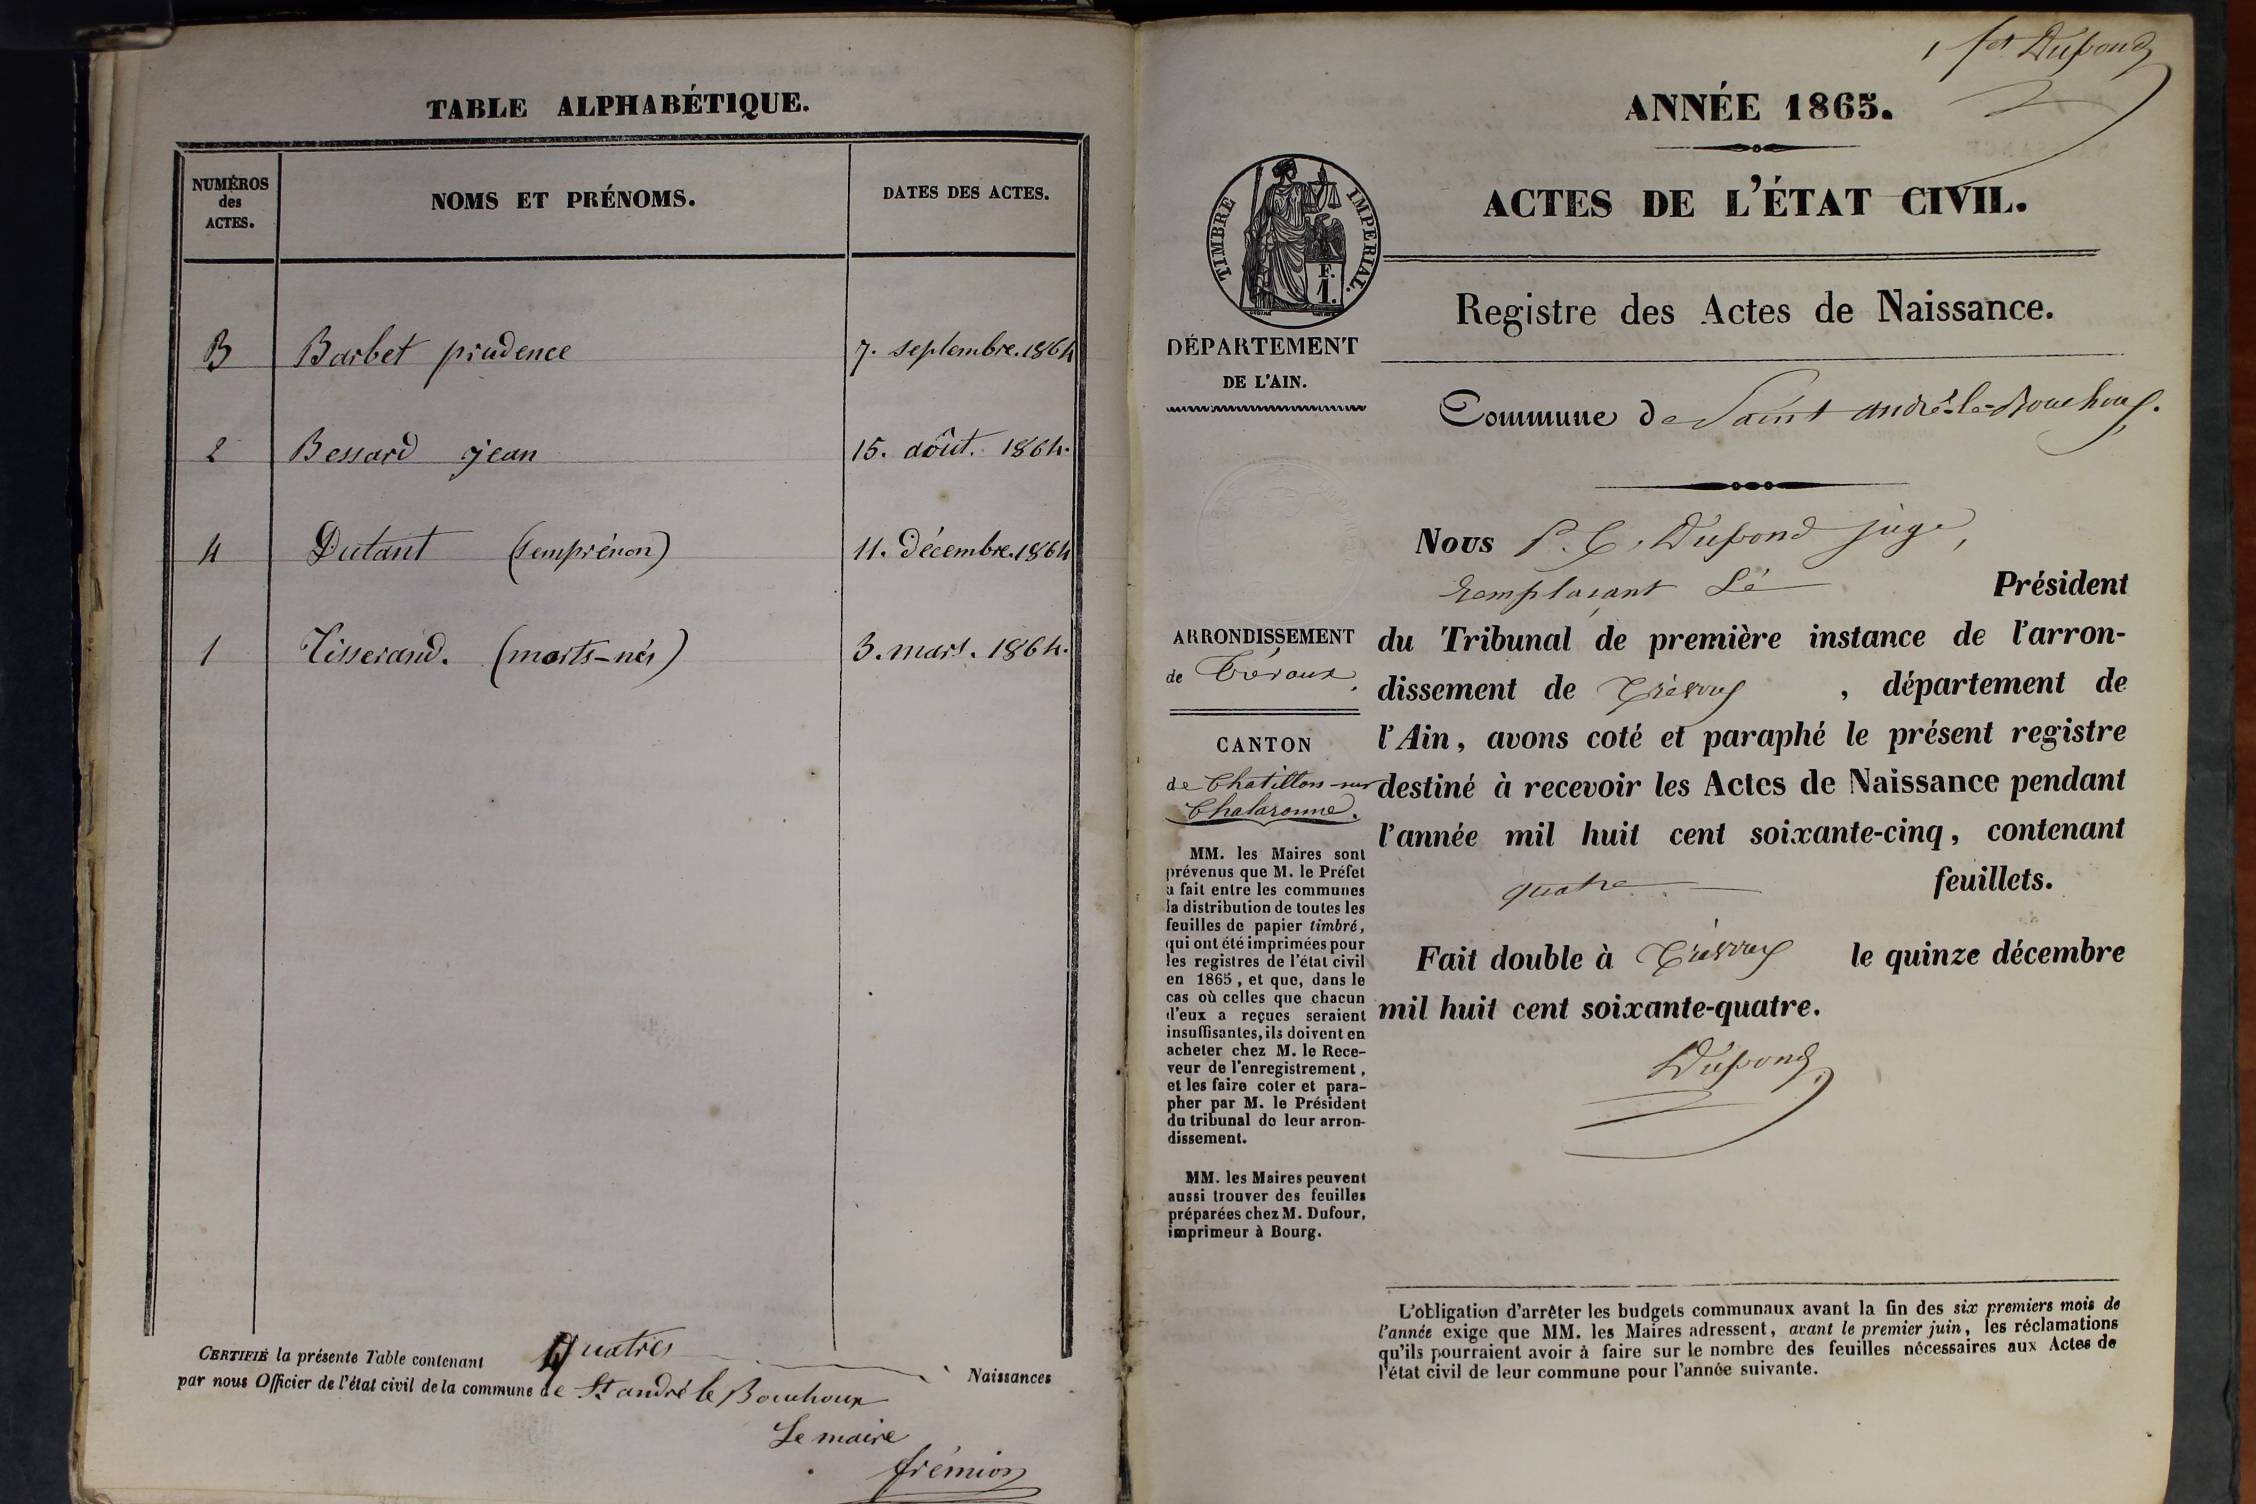 TABLE ALPHABÉTIQUE.
NUMÉROS des ACTES.
NOMS ET PRÉNOMS.
DATES DES ACTES.
B Barbet prudence 7. septembre. 1864
2 Bessard jean 15. août. 1864.
4 Dutant (semprénon) 11. décembre. 1864
1 Tisserand. (morts-nés) 3. mars. 1864.
CERTIFIÉ la présente Table contenant Quatres Naissances
par nous Officier de l'état civil de la commune de St andré le Bouchoux
Le maire
frémion
1 fet Dupond
ANNÉE 1865.
ACTES DE L'ÉTAT CIVIL.
TIMBRE IMPERIAL.
F.
1.
Registre des Actes de Naissance.
DÉPARTEMENT
DE L'AIN.
Commune de Saint andré-le-Bouchoux.
ARRONDISSEMENT
de Trévoux.
CANTON
de Chatillon-sur
Chalaronne.
MM. les Maires sont
prévenus que M. le Préfet
a fait entre les communes
la distribution de toutes les
feuilles de papier timbré,
qui ont été imprimées pour
les registres de l'état civil
en 1865, et que, dans le
cas où celles que chacun
d'eux a reçues seraient
insuffisantes, ils doivent en
acheter chez M. le Rece-
veur de l'enregistrement,
et les faire coter et para-
pher par M. le Président
du tribunal de leur arron-
dissement.
MM. les Maires peuvent
aussi trouver des feuilles
préparées chez M. Dufour,
imprimeur à Bourg.
Nous P. C. Dupond juge,
remplaçant Lé Président
du Tribunal de première instance de l'arron-
dissement de Trévoux, département de
l'Ain, avons coté et paraphé le présent registre
destiné à recevoir les Actes de Naissance pendant
l'année mil huit cent soixante-cinq, contenant
quatre feuillets.
Fait double à Trévoux le quinze décembre
mil huit cent soixante-quatre.
Dupond
L'obligation d'arrêter les budgets communaux avant la fin des six premiers mois de
l'année exige que MM. les Maires adressent, avant le premier juin, les réclamations
qu'ils pourraient avoir à faire sur le nombre des feuilles nécessaires aux Actes de
l'état civil de leur commune pour l'année suivante.